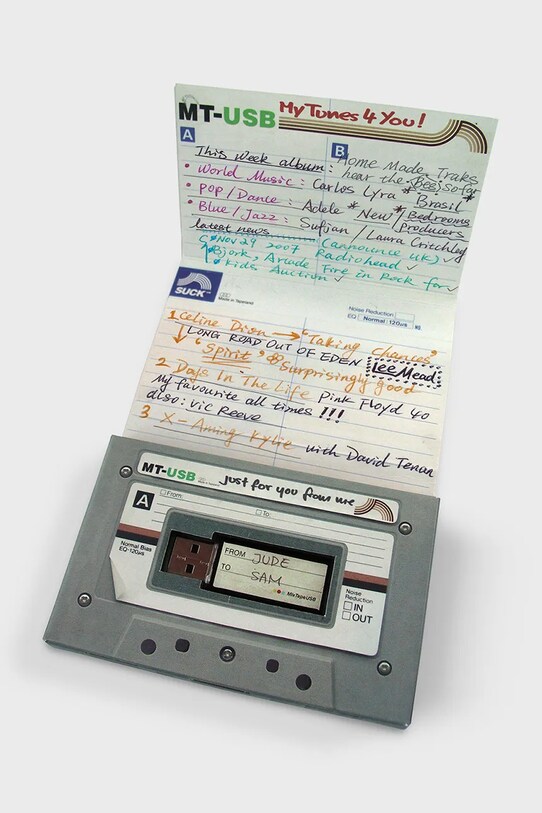 MT-USB My Tunes 4 You!
A B
This Week album: Home Made Traks
• World Music: Carlos Lyra * Brasil
hear the Bee! Sofa
• Pop/Dance: Adele * New * / Bedrooms
• Blue/Jazz: Sufjan / Laura Critchley
Producers
latest news
Nov 29 2007 (announce UK) ✓
Bjork, Radiohead ✓
Arcade Fire in Rock for ✓
kids Auction ✓
SUCK™
Made in Tapeland
Noise Reduction
EQ Normal:120µs
1 Celine Dion → "Taking Chances"
LONG ROAD OUT OF EDEN Lee Mead
"Spirit" Surprisingly good
2 Days In The Life Pink Floyd 40
My favourite all times !!!
also: Vic Reeve
3 X-Aming Kylie with David Tenan
MT-USB just for you from me
A From:
To:
Normal Bias
EQ-120µs
FROM JUDE
TO SAM
MixTapeUSB
Noise
Reduction
IN
OUT